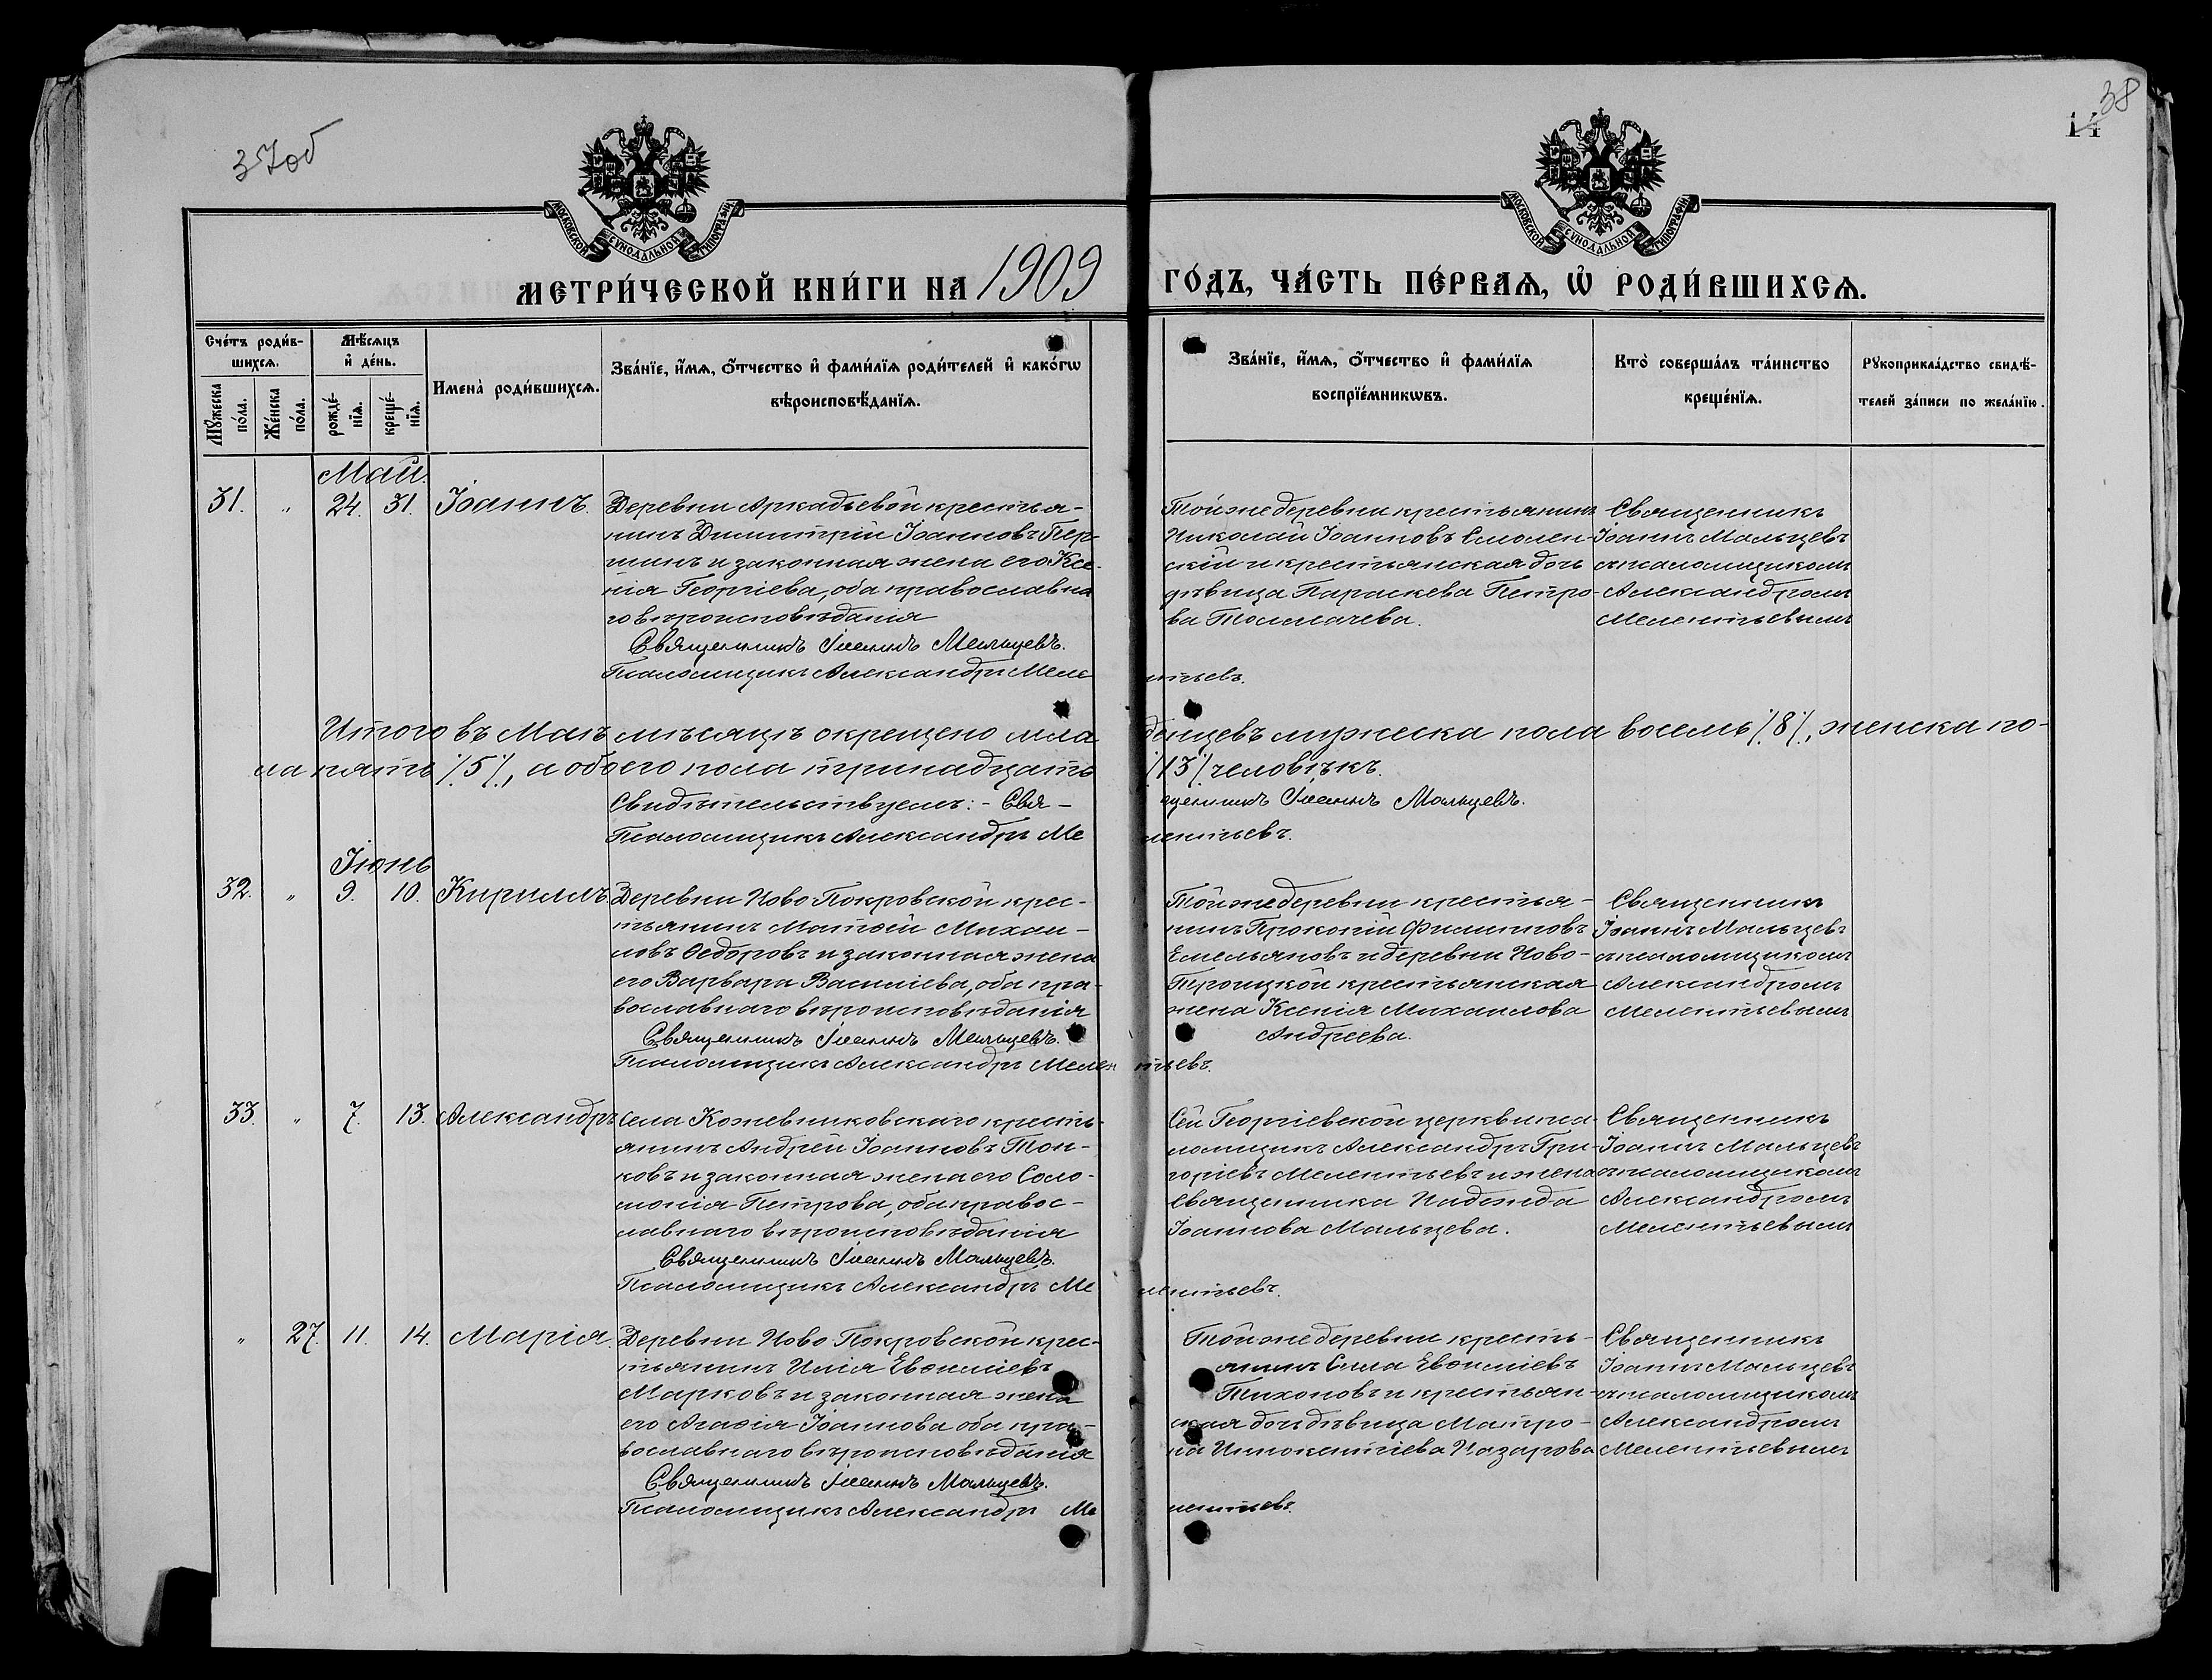 37об
38
14
МОСКОВСКОЙ СѴНОДАЛЬНОЙ ТИПОГРАФІИ
МОСКОВСКОЙ СѴНОДАЛЬНОЙ ТИПОГРАФІИ
МЕТРИ́ЧЕСКОЙ КНИ́ГИ НА 1909 ГО́ДЪ, ЧА́СТЬ ПЕ́РВАѦ, Ѡ҆ РОДИ́ВШИХСѦ.
Сче́тъ роди́в-
шихсѧ.
Мꙋ́жеска
по́ла.
Же́нска
по́ла.
Мѣ́сѧцъ
и҆ де́нь.
рожде́-
нїѧ.
креще́-
нїѧ.
Имена̀ роди́вшихсѧ.
Зва́нїе, и҆́мѧ, ѻ҆́тчество и҆ фами́лїѧ роди́телей и҆ како́гѡ
вѣроисповѣ́данїѧ.
Зва́нїе, и҆́мѧ, ѻ҆́тчество и҆ фами́лїѧ
воспрїе́мникѡвъ.
Кто̀ соверша́лъ та́инство
креще́нїѧ.
Рꙋкоприкла́дство свидѣ́-
телей за́писи по жела́нїю.
Май.
31. " 24. 31. Іоаннъ.
Деревни Аркадьевой крестья-
нинъ Димитрій Іоанновъ Пер-
шинъ и законная жена его Ксе-
нія Георгіева, оба православна
го вѣроисповѣданія
Священникъ Іоаннъ Мальцевъ.
Псаломщикъ Александръ Мелентьевъ.
Тойже деревни крестьянинъ
Николай Іоанновъ Смолен-
скій и крестьянская дочь
дѣвица Параскева Петро-
ва Толмачева.
Священникъ
Іоаннъ Мальцевъ
съ псаломщикомъ
Александромъ
Мелентьевымъ
Итого въ Маѣ мѣсяцѣ окрещено младенцевъ мужеска пола восемь /8/, женска по-
ла пять /5/, а обоего пола тринадцать /13/ человѣкъ.
Свидѣтельствуемъ: - Священникъ Іоаннъ Мальцевъ.
Псаломщикъ Александръ Мелентьевъ.
Іюнь
32. " 9. 10. Кириллъ
Деревни Ново Покровской крес-
тьянинъ Матѳей Михаи-
ловъ Ѳедоровъ и законная жена
его Варвара Василіева, оба пра-
вославнаго вѣроисповѣданія
Священникъ Іоаннъ Мальцевъ.
Псаломщикъ Александръ Мелентьевъ.
Тойже деревни крестья-
нинъ Прокопій Филипповъ
Емельяновъ и деревни Ново-
Троицкой крестьянская
жена Ксенія Михаилова
Андреева.
Священникъ
Іоаннъ Мальцевъ
съ псаломщикомъ
Александромъ
Мелентьевымъ
33. " 7. 13. Александръ
села Кожевниковскаго кресть-
янинъ Андрей Іоанновъ Тон-
ковъ и законная жена его Соло-
монія Петрова, оба правос-
лавнаго вѣроисповѣданія
Священникъ Іоаннъ Мальцевъ.
Псаломщикъ Александръ Мелентьевъ.
Сей Георгіевской церкви пса-
ломщикъ Александръ Гри-
горіевъ Мелентьевъ и жена
священника Надежда
Іоаннова Мальцева.
Священникъ
Іоаннъ Мальцевъ
съ псаломщикомъ
Александромъ
Мелентьевымъ
" 27. 11. 14. Марія.
Деревни Ново Покровской крес-
тьянинъ Илія Евѳиміевъ
Марковъ и законная жена
его Агаѳія Іоаннова оба пра-
вославнаго вѣроисповѣданія
Священникъ Іоаннъ Мальцевъ.
Псаломщикъ Александръ Мелентьевъ.
Тойже деревни кресть-
янинъ Сила Евѳиміевъ
Тихоновъ и крестьян-
ская дочь дѣвица Матро-
на Иннокентіева Назарова
Священникъ
Іоаннъ Мальцевъ
съ псаломщикомъ
Александромъ
Мелентьевымъ